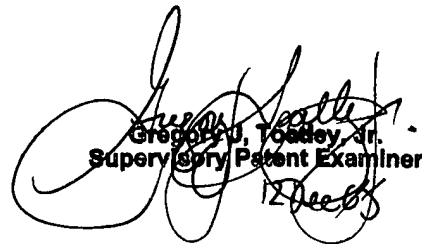 Gregory J. Toatley, Jr.
Supervisory Patent Examiner
12 Dec 05